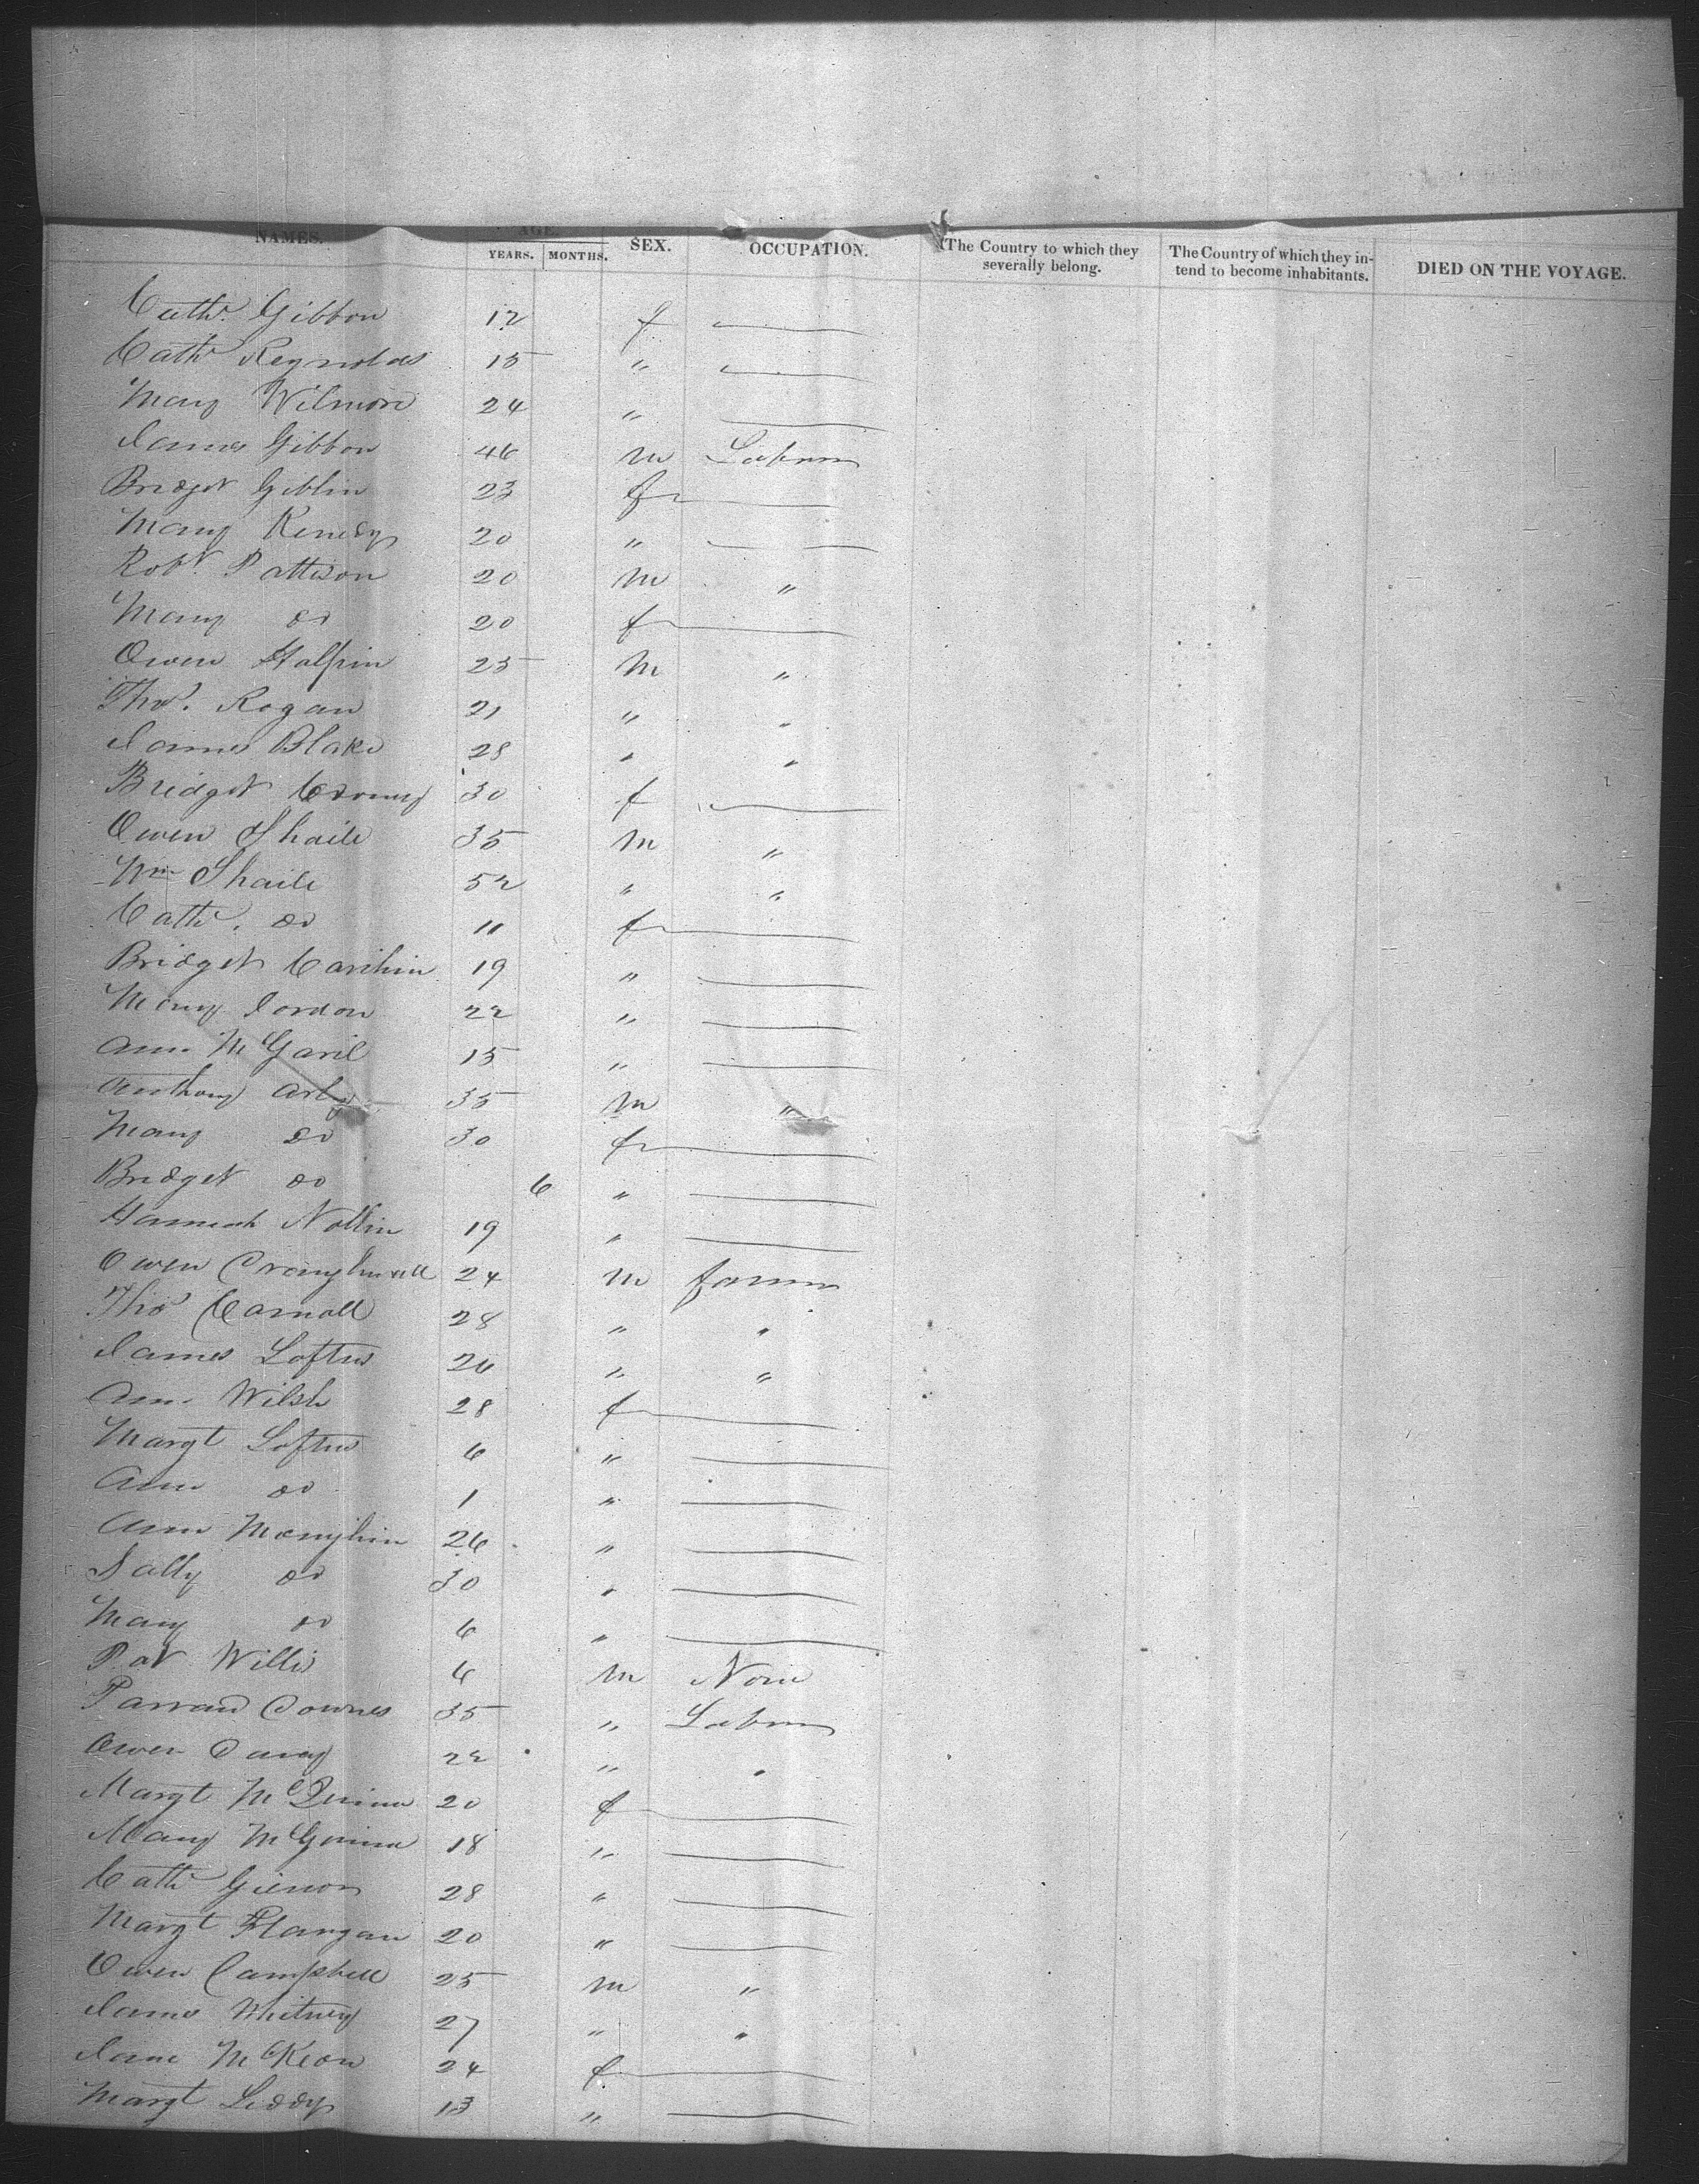 NAMES. AGE. YEARS. MONTHS. SEX. OCCUPATION. The Country to which they severally belong. The Country of which they in-tend to become inhabitants. DIED ON THE VOYAGE.
Cathe. Gibbon 12 f
Cathe Reynolds 15 "
Mary Wilmore 24 "
James Gibbon 46 m Labourer
Bridget Giblin 23 f
Mary Kenedy 20 "
Robt. Pattison 20 m "
Mary do 20 f
Owen Halpin 25 m "
Thos. Rogan 21 " "
James Blake 28 " "
Bridget 30 f
Owen Shaile 35 m "
Wm Shaile 52 " "
Cathe. do 11 f
Bridget 19 "
Mary Jordon 22 "
Ann 15 "
Anthony 35 m "
Mary do 30 f
Bridget do 6 "
Hannah Nollin 19 "
Owen 24 m farmer
Thos Carroll 28 " "
James Loftus 26 " "
Ann Wilsh 28 f
Margt Loftus 6 "
Ann do 1 "
Ann 26 "
Sally do 30 "
Mary do 6 "
Pat Willis 6 m None
Downes 35 " Labourer
Owen 22 " "
Margt 20 f
Mary 18 "
Cathe 28 "
Margt Flangan 20 "
Owen Campbell 25 m "
James Whitney 27 " "
Jane McKeon 24 f
Margt Leddy 13 "